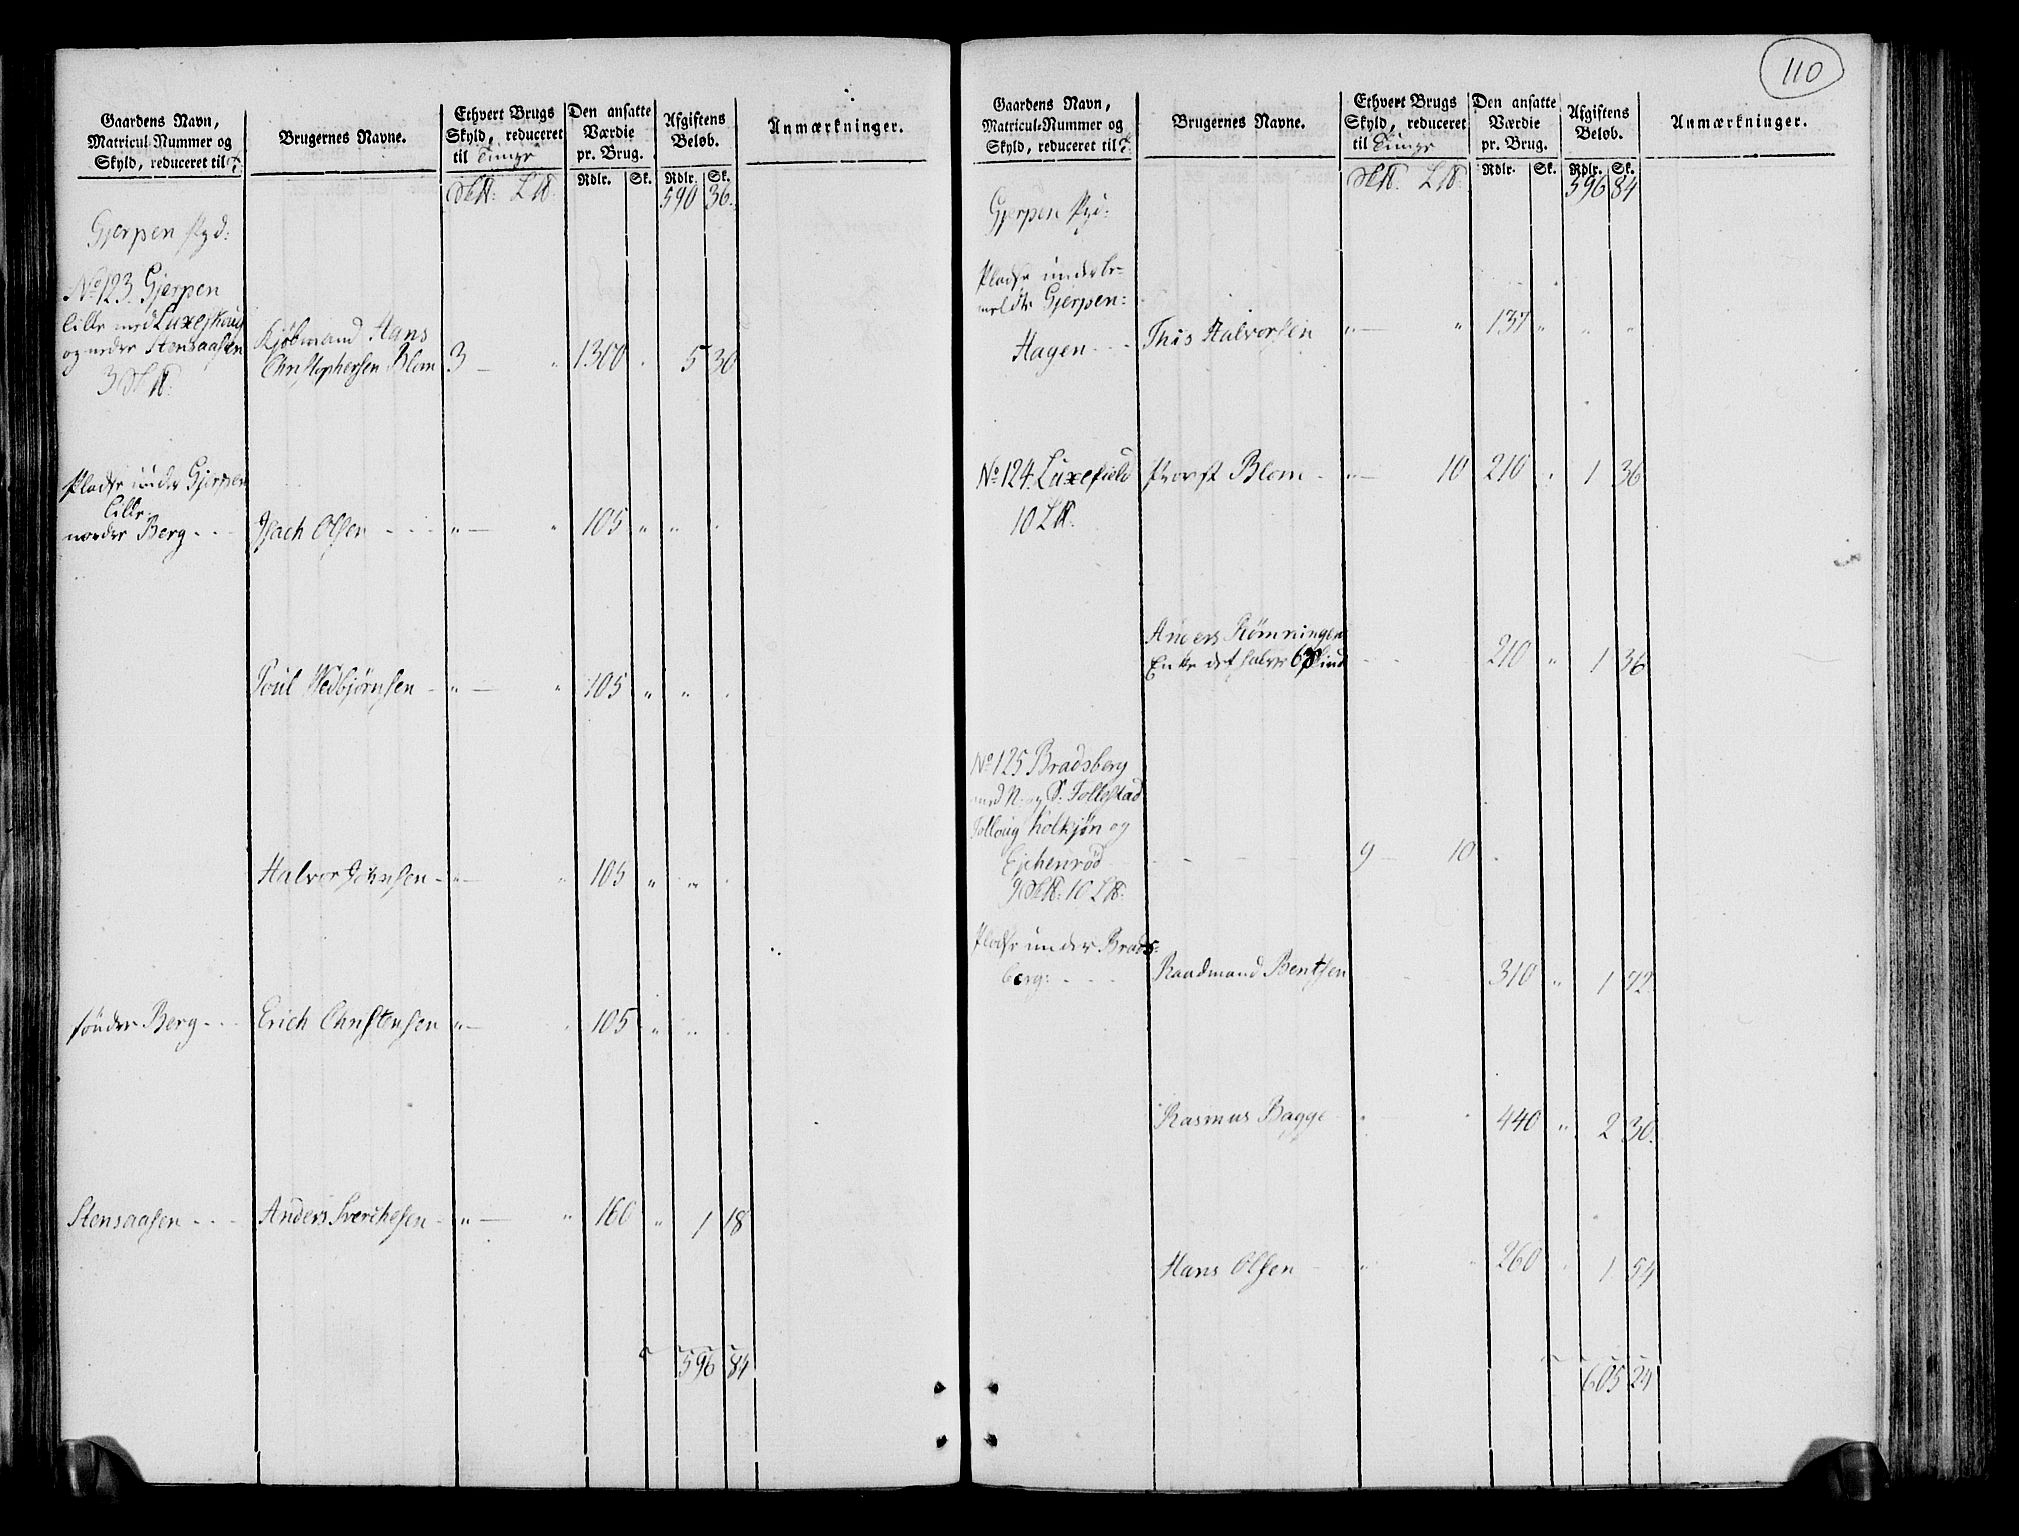 110
Gaardens Navn,
Matricul-Nummer og
Skyld, reduceret til T.
Brugernes Navne.
Ethvert Brugs
Skyld, reduceret
til Tunge
Den ansatte
Værdie
pr. Brug.
Afgiftens
Beløb.
Anmærkninger.
Rdlr. Sk. Rdlr. Sk.
590 36.
Gjerpen
No 123. Gjerpen
lille med Luxefhoug
og neder Stensaasen
3
Kjøbmand Hans
Christophersen Blom 3 — " 1300 . 5 30
Pladse under Gjerpen
lille.
nordre Berg - - - Isach Olsen - - - " — " 105 " "
Poul Wedbjørnsen - " — " 105 " "
Halvor Johnsen - " — " 105 " "
søndre Berg - - - Erich Christensen " — " 105 " "
Stensaasen - - - Anders Sverchesen - " — " 160 " 1 18
596 84
Gaardens Navn,
Matricul-Nummer og
Skyld, reduceret til T.
Brugernes Navne.
Ethvert Brugs
Skyld, reduceret
til Tunge
Den ansatte
Værdie
pr. Brug.
Afgiftens
Beløb.
Anmærkninger.
Rdlr. Sk. Rdlr. Sk.
596 84
Gjerpen
Pladse underbe-
meldte Gjerpen:
Hagen - - - This Halvorsen " — " 137 " " "
No 124. Luxefield Provst Blom - " — 10 210 . 1 36
10 L℔.
Anders Rømningen
Enke det halve 210 " 1 36
No 125 Bradsberg
med N. og S. Follestad
Kolkjøn og
Ejchenrød - - - - 9 — 10
9 10 L℔:
Pladse under Brads-
berg: - - - Raadmand Bentsen 310 " 1 72.
Rasmus Bagge 440 " 2 30.
Hans Olsen - 260 " 1 54
605 24